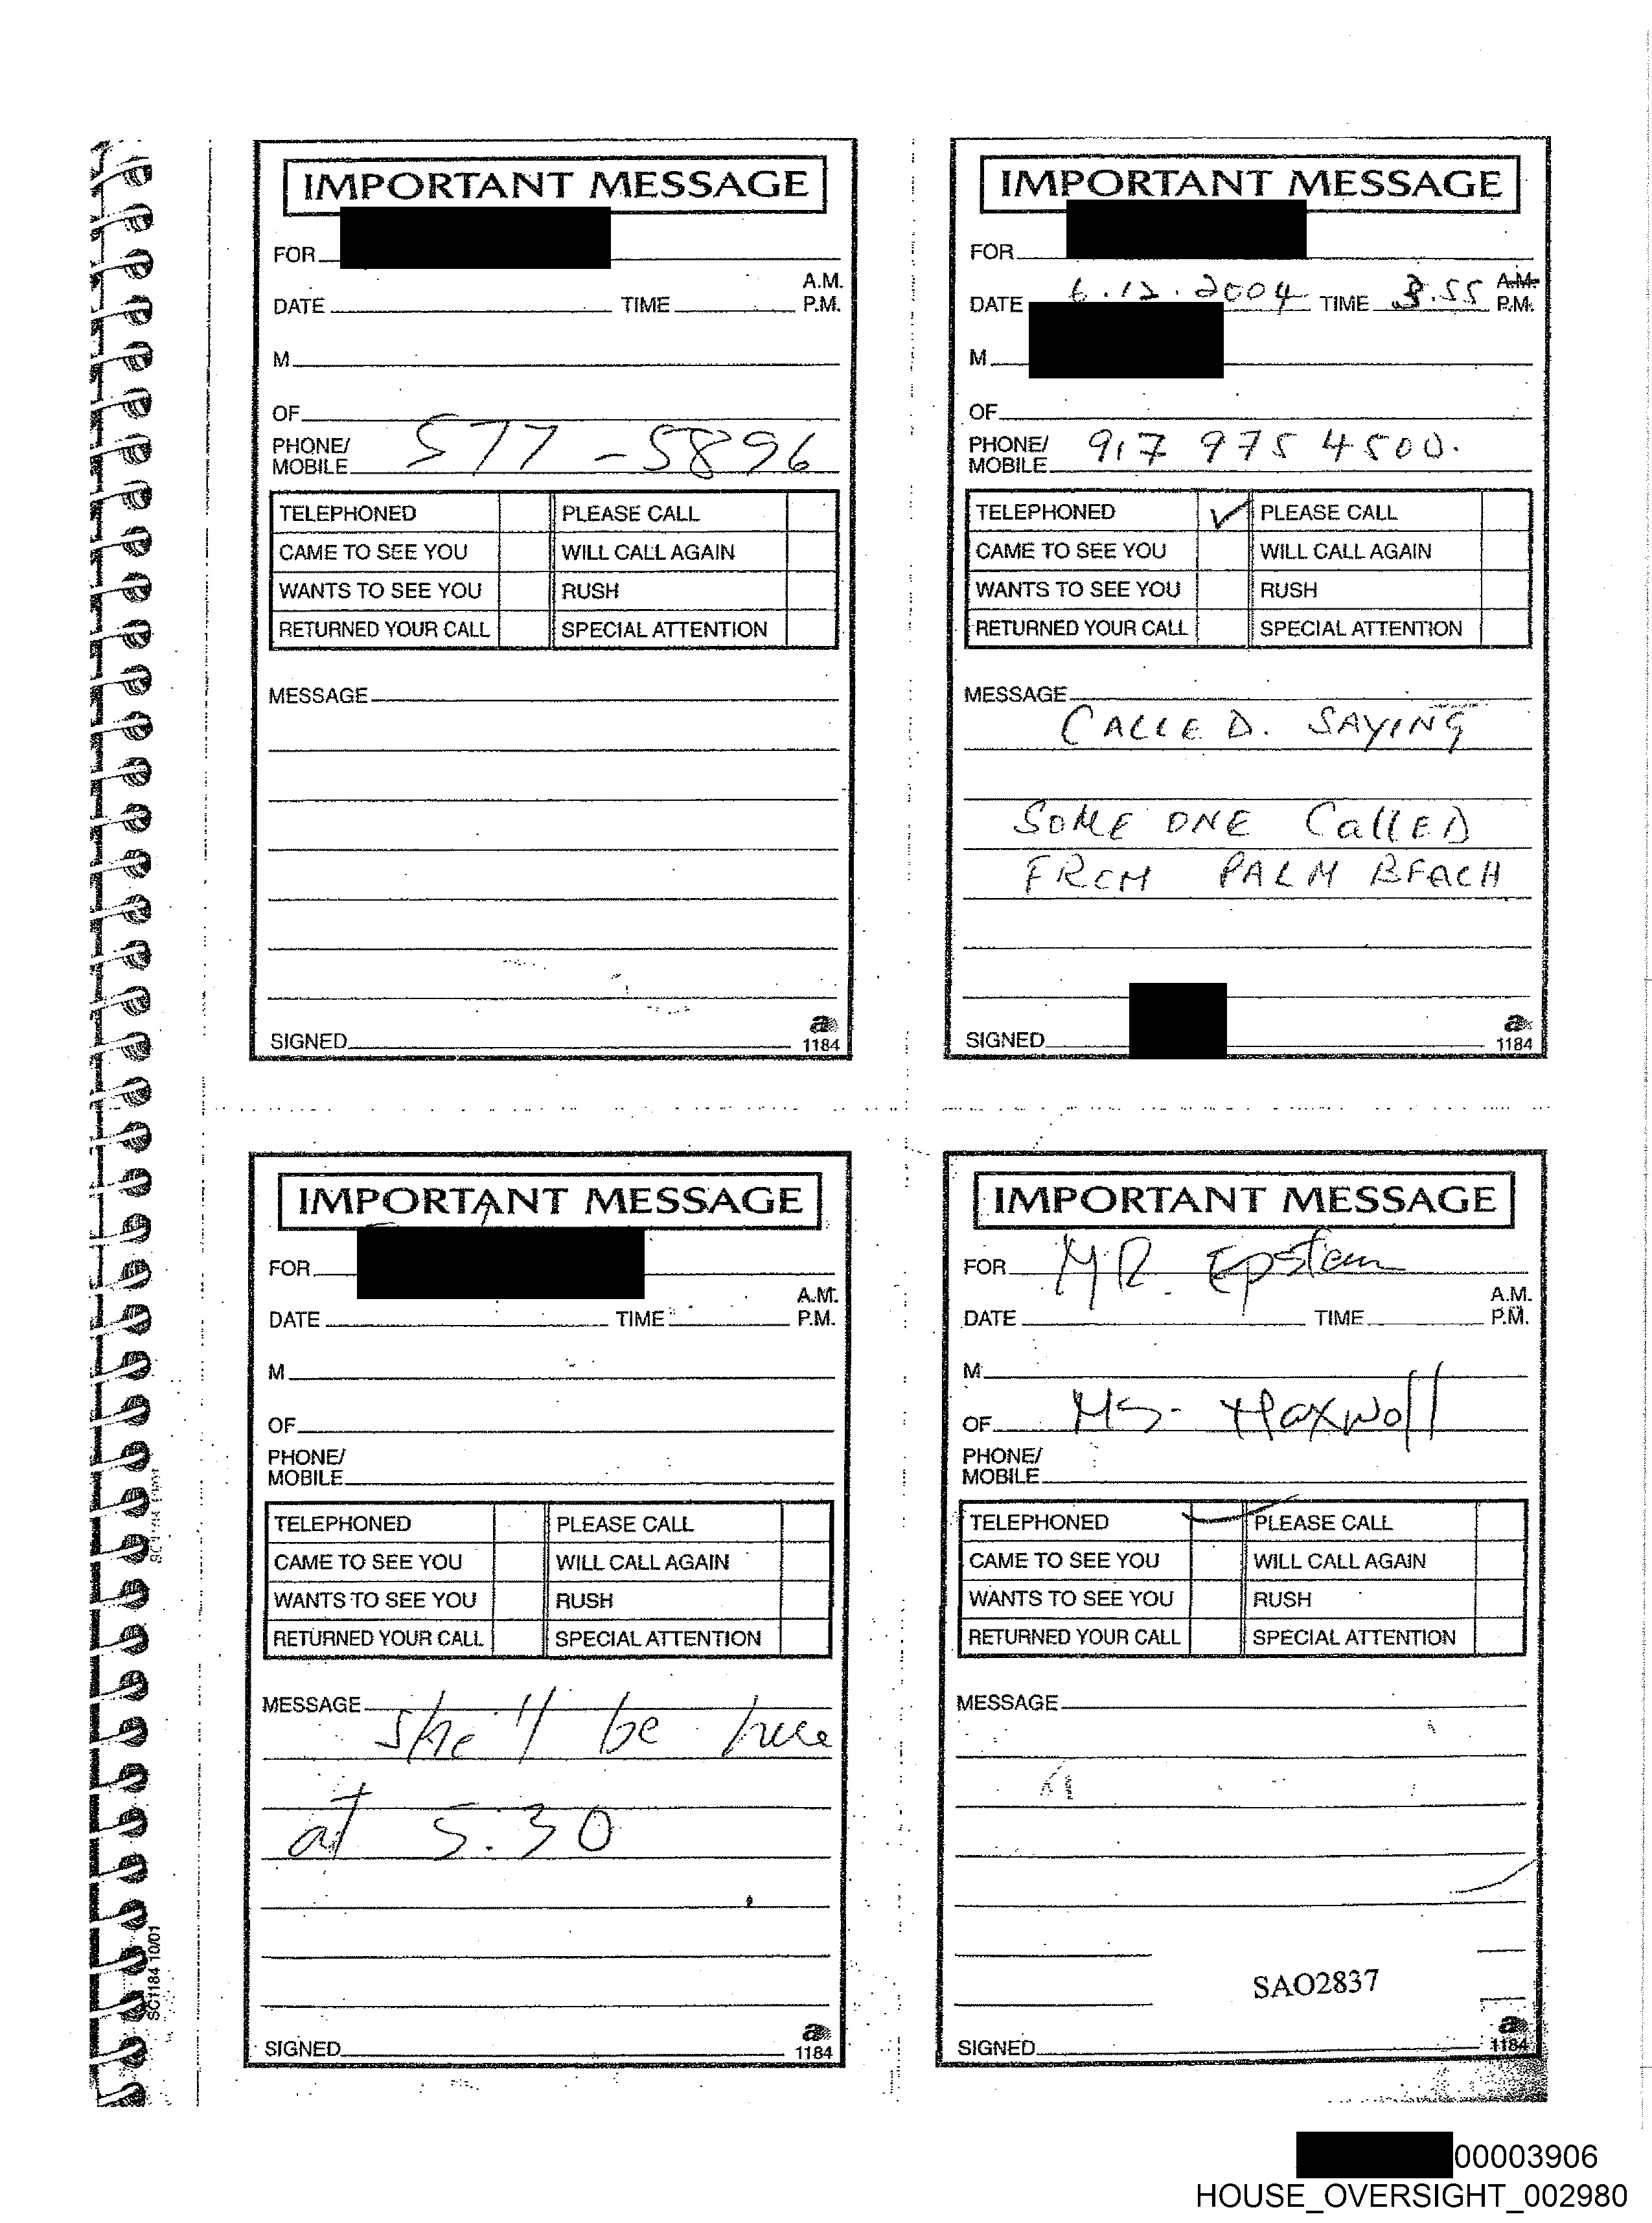 IMPORTANT MESSAGE
FOR
A.M.
DATE TIME P.M.
M
OF
PHONE/
MOBILE 577-5896
TELEPHONED PLEASE CALL
CAME TO SEE YOU WILL CALL AGAIN
WANTS TO SEE YOU RUSH
RETURNED YOUR CALL SPECIAL ATTENTION
MESSAGE
SIGNED
a
1184
IMPORTANT MESSAGE
FOR
A.M.
DATE 6.12.2004 TIME 3.55 P.M.
M
OF
PHONE/
MOBILE 917 975 4500.
TELEPHONED ✓ PLEASE CALL
CAME TO SEE YOU WILL CALL AGAIN
WANTS TO SEE YOU RUSH
RETURNED YOUR CALL SPECIAL ATTENTION
MESSAGE
CALLED. SAYING
SOME ONE CallED
FROM PALM BEACH
SIGNED
a
1184
IMPORTANT MESSAGE
FOR
A.M.
DATE TIME P.M.
M
OF
PHONE/
MOBILE
TELEPHONED PLEASE CALL
CAME TO SEE YOU WILL CALL AGAIN
WANTS TO SEE YOU RUSH
RETURNED YOUR CALL SPECIAL ATTENTION
MESSAGE she'll be here
at 5:30
SIGNED
a
1184
SC1184 10/01
IMPORTANT MESSAGE
FOR MR. Epstein
A.M.
DATE TIME P.M.
M
OF Ms. Maxwell
PHONE/
MOBILE
TELEPHONED ✓ PLEASE CALL
CAME TO SEE YOU WILL CALL AGAIN
WANTS TO SEE YOU RUSH
RETURNED YOUR CALL SPECIAL ATTENTION
MESSAGE
SAO2837
SIGNED
a
1184
00003906
HOUSE_OVERSIGHT_002980